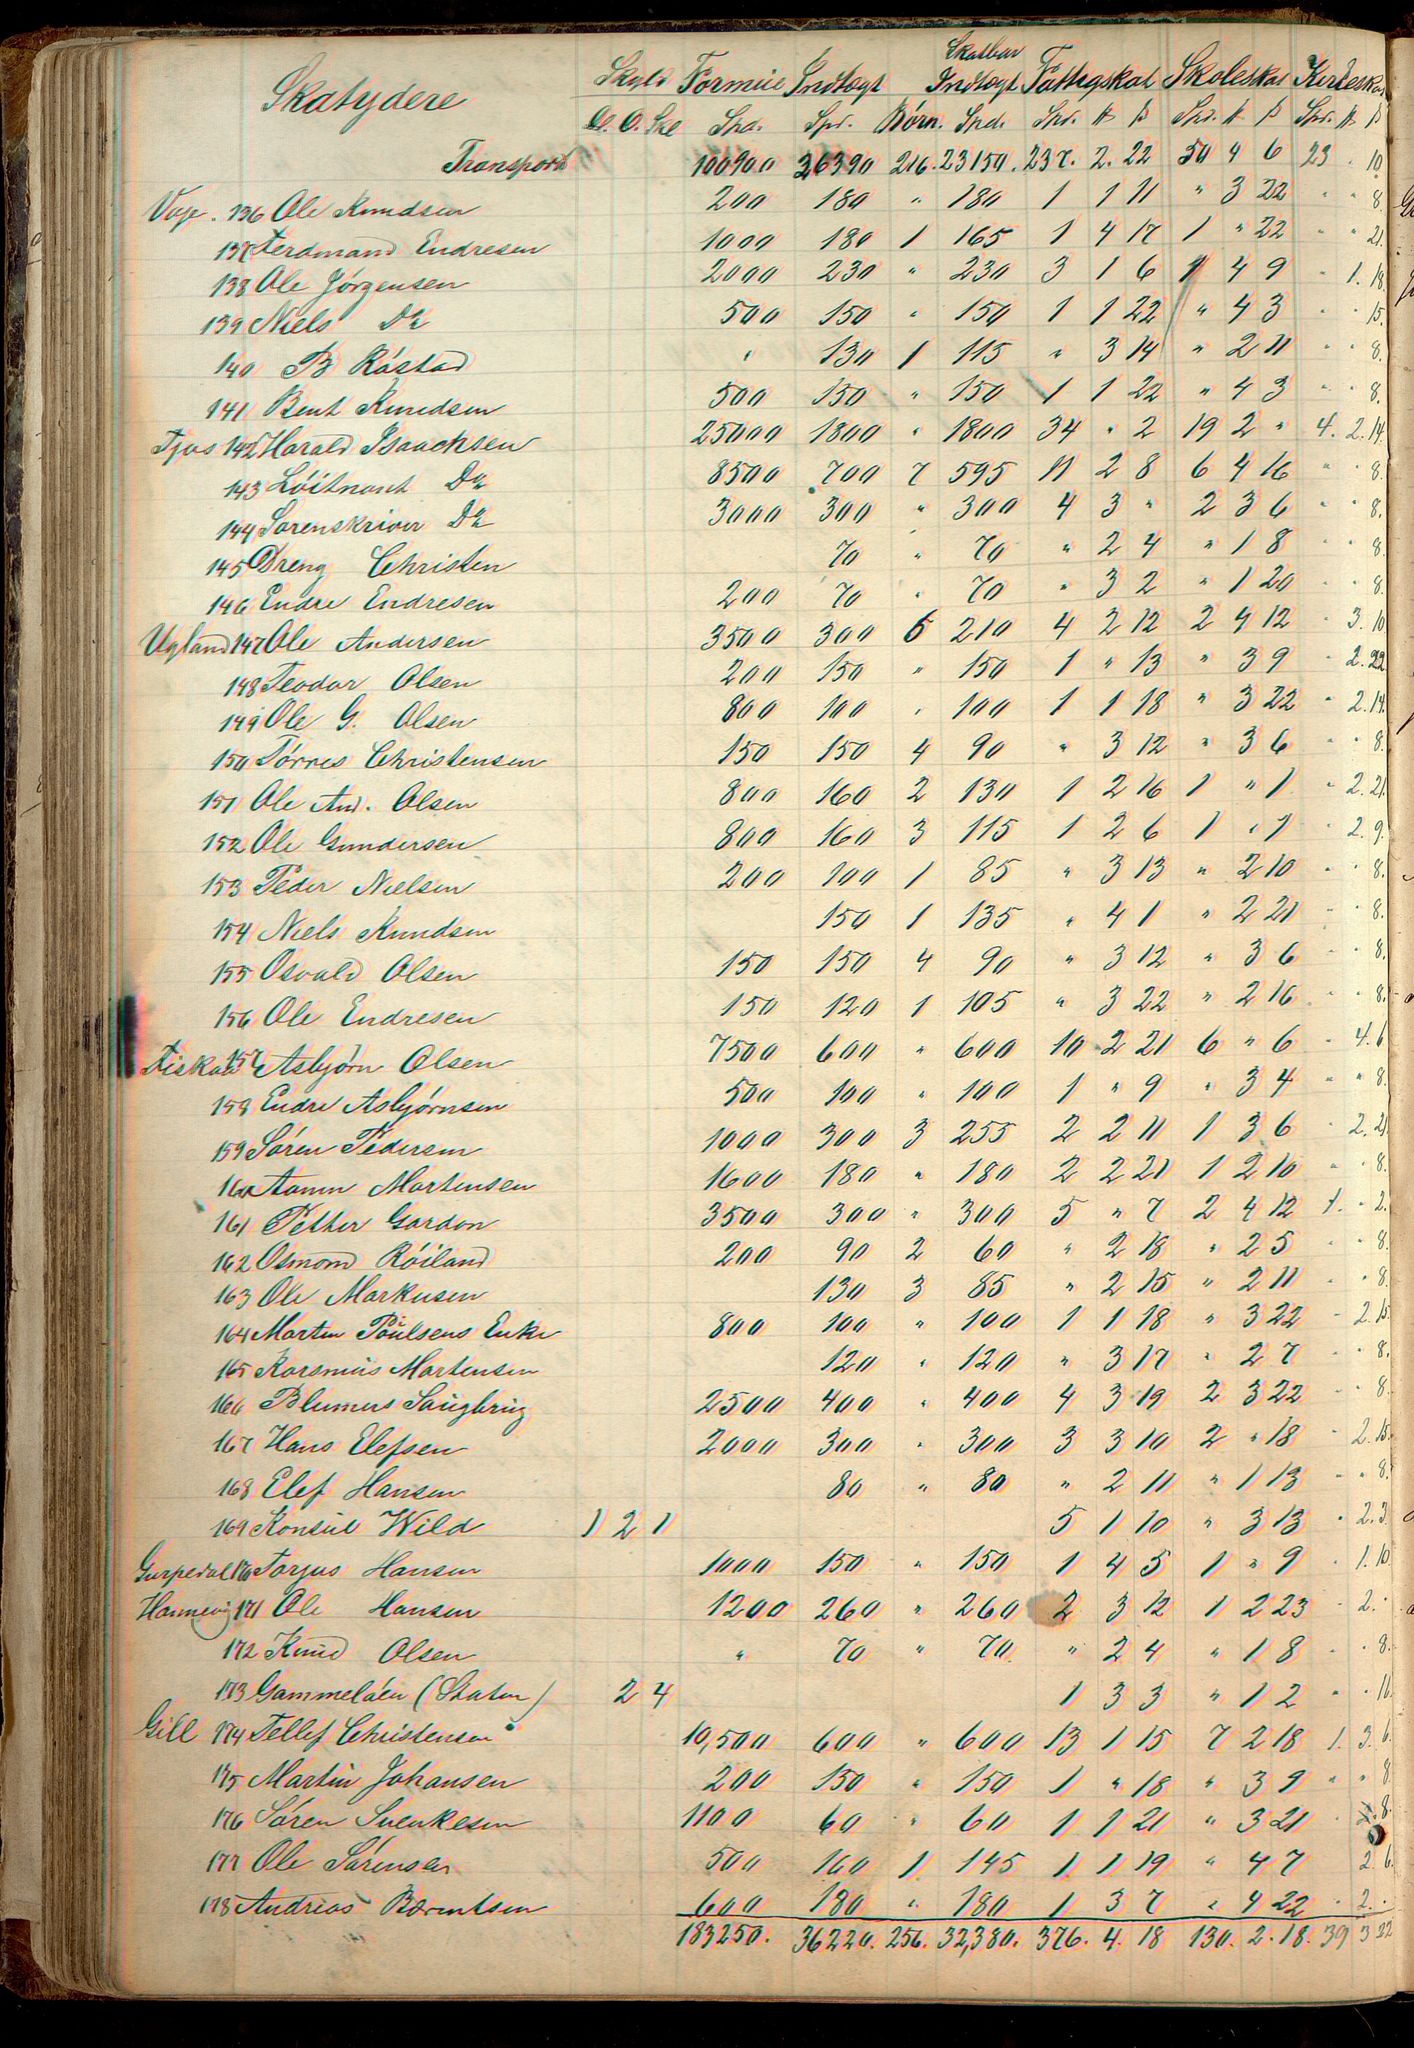 Skatydere Skyld Formue Indtægt Skatbar Indtægt Fattigskat Skoleskat Kirkeskat
D. O. Ske Spd. Spd. Børn. Spd. Spd. # β Spd. # β Spd. # β
Transport 100900 26390 216. 23150. 237. 2. 22 50 4 6 23 . 10
Vaje. 136 Ole Knudsen 200 180 " 180 1 1 11 " 3 22 " " 8.
137 Ferdinand Endresen 1000 180 1 165 1 4 17 1 " 22 " " 21.
138 Ole Jørgensen 2000 230 " 230 3 1 6 1 4 9 " 1. 18.
139 Niels Do 500 150 " 150 1 1 22 " 4 3 " " 15.
140 B Råstad " 130 1 115 " 3 14 " 2 11 " " 8.
141 Bent Knudsen 500 150 " 150 1 1 22 " 4 3 " " 8.
Tjos 142 Harald Isaachsen 25000 1800 " 1800 34 " 2 19 2 " 4. 2. 14.
143 Löitnant Do 8500 700 7 595 11 2 8 6 4 16 " " 8.
144 Sorenskriver Do 3000 300 " 300 4 3 " 2 3 6 " " 8.
145 Dreng Christen 70 " 70 " 2 4 " 1 8 " " 8.
146 Endre Endresen 200 70 " 70 " 3 2 " 1 20 " " 8.
Ugland 147 Ole Andersen 3500 300 6 210 4 2 12 2 4 12 " 3. 10
148 Teodor Olsen 200 150 " 150 1 " 13 " 3 9 " 2. 22
149 Ole G. Olsen 800 100 " 100 1 1 18 " 3 22 " 2. 14.
150 Törres Christensen 150 150 4 90 " 3 12 " 3 6 " " 8.
151 Ole And. Olsen 800 160 2 130 1 2 16 1 " 1 " 2. 21.
152 Ole Gundersen 800 160 3 115 1 2 6 1 " 1 " 2. 9.
153 Peder Nielsen 200 100 1 85 " 3 13 " 2 10 " " 8.
154 Niels Knudsen 150 1 135 " 4 1 " 2 21 " " 8.
155 Osvald Olsen 150 150 4 90 " 3 12 " 3 6 " " 8.
156 Ole Endresen 150 120 1 105 " 3 22 " 2 16 " " 8.
Fiskaa 157 Asbjørn Olsen 7500 600 " 600 10 2 21 6 " 6 " 4. 6
158 Endre Asbjørnsen 500 100 " 100 1 " 9 " 3 4 " " 8.
159 Sören Pedersen 1000 300 3 255 2 2 11 1 3 6 " 2. 21.
160 Aanen Mortensen 1600 180 " 180 2 2 21 1 2 10 " " 8.
161 Petter Gordon 3500 300 " 300 5 " 7 2 4 12 1. " 2.
162 Osmond Röiland 200 90 2 60 " 2 18 " 2 5 " " 8.
163 Ole Markusen 130 3 85 " 2 15 " 2 11 " " 8.
164 Morten Poulsens Enke 800 100 " 100 1 1 18 " 3 22 " 2. 15.
165 Rasmus Mortensen 120 " 120 " 3 17 " 2 7 " " 8.
166 Blumers Saugbrug 2500 400 " 400 4 3 19 2 3 22 " " 8.
167 Hans Elefsen 2000 300 " 300 3 3 10 2 " 18 " 2. 15.
168 Elef Hansen 80 " 80 " 2 11 " 1 13 " " 8.
169 Konsul Wild 1 2 1 5 1 10 " 3 13 " 2. 3.
170 Torjus Hansen 1000 150 " 150 1 4 5 1 " 9 " 1. 10.
Hannevig 171 Ole Hansen 1200 260 " 260 2 3 12 1 2 23 " 2. "
172 Knud Olsen " 70 " 70. " 2 4 " 1 8 " " 8.
173 Gammeløen (Staten) 2 4 1 3 3 " 1 2 " " 16.
Gill 174 Tellef Christensen 10,500 600 " 600 13 1 15 7 2 18 1. 3. 6.
175 Martin Johansen 200 150 " 150 1 " 18 " 3 9 " " 8
176 Søren Svenkesen 1100 60 " 60 1 1 21 " 3 21 " 8.
177 Ole Sørensen 500 160 1. 145 1. 1 19 " 4 7 2 6.
178 Andreas Berentsen 600 180 " 180 1 3 7 " 4 22 " 2. "
183250. 36220. 256. 32,380. 376. 4. 18 130. 2. 18. 39 3 22